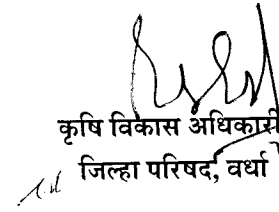 कृषि विकास अधिकारी
जिल्हा परिषद, वर्धा